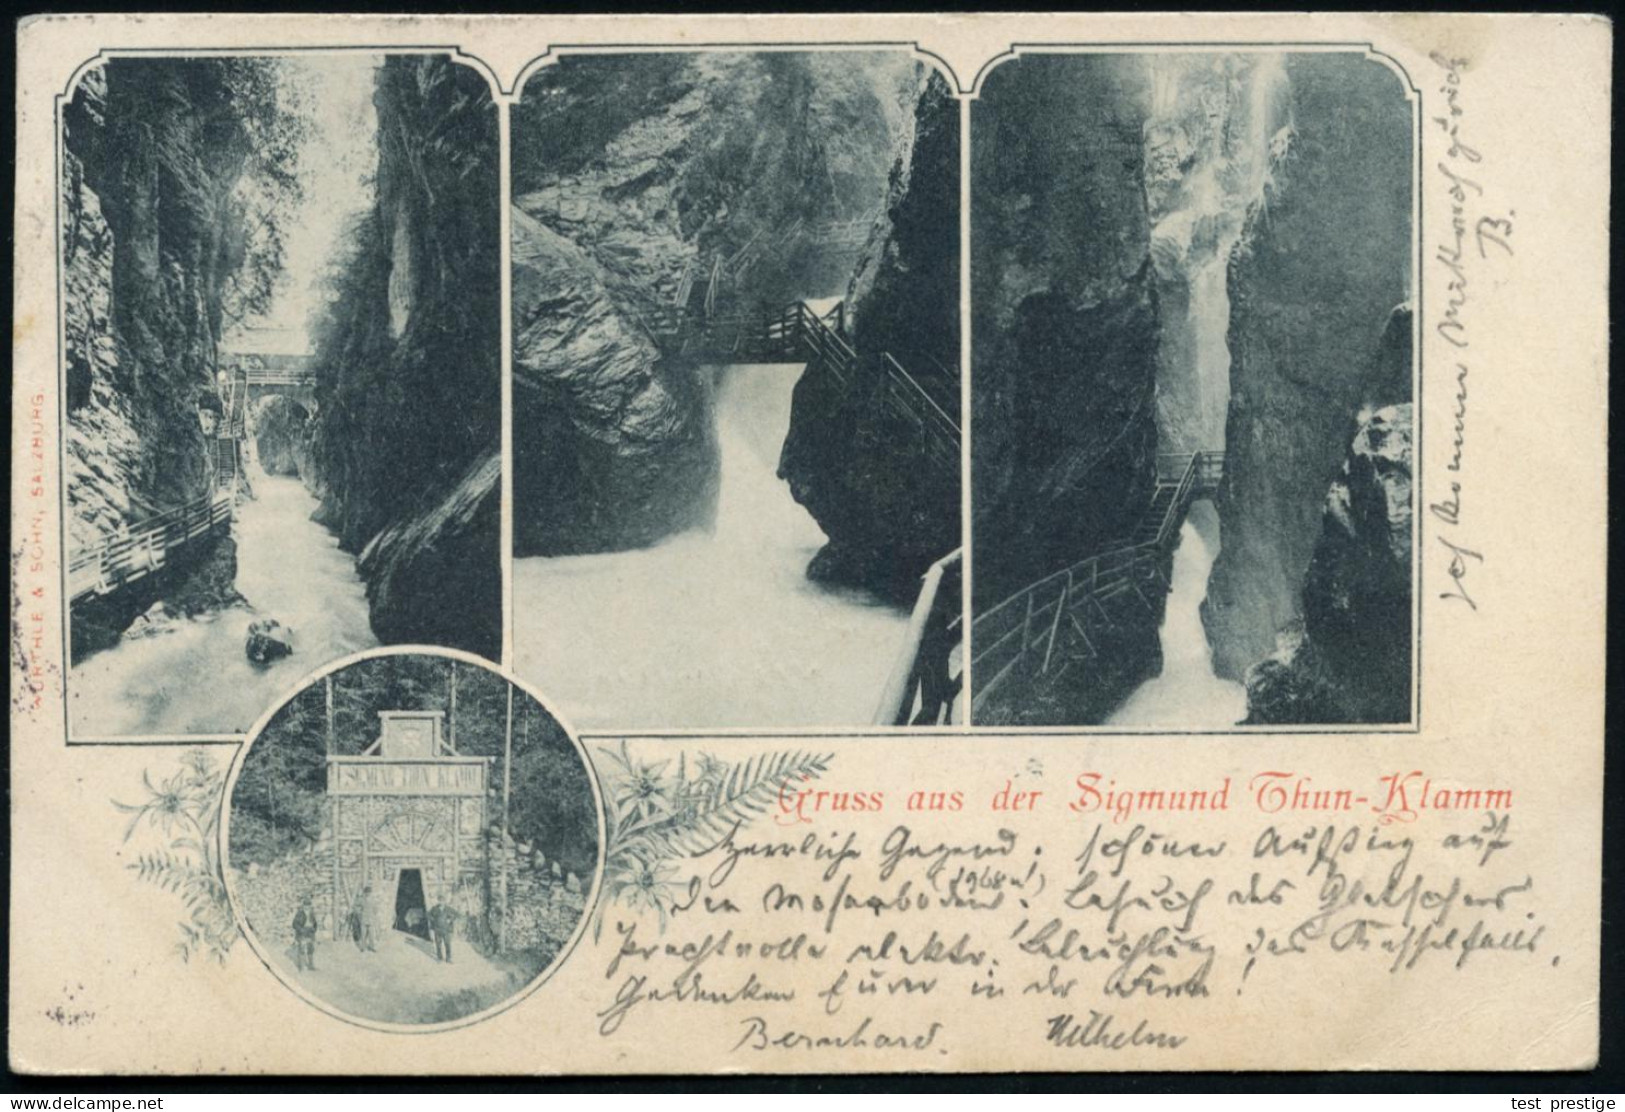 WÜRTHLE & SOHN, SALZBURG.
SIGMUND THUN KLAMM
Gruss aus der Sigmund Thun-Klamm
Herrliche Gegend. schöner Aufstieg auf
den Moserboden (1968 m). Besuch des Gletschers.
Prachtvolle elektr. Beleuchtung des Kesselfalls.
Gedenken Eurer in der Ferne!
Bernhard. Wilhelm
Ich komme Mittwoch zurück
B.
test_prestige